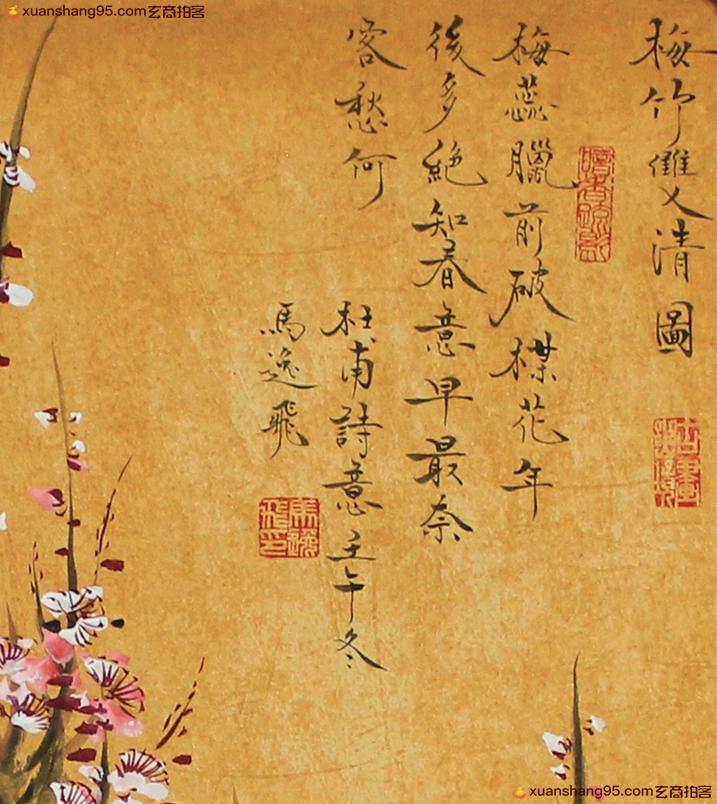 xuanshang95.com玄商拍客
梅竹雙清圖
暗香疏影
梅蕊臘前破楳花年
後多絕知春意早最奈
客愁何
杜甫詩意壬午冬
馬逸飛
馬逸飛印
xuanshang95.com玄商拍客